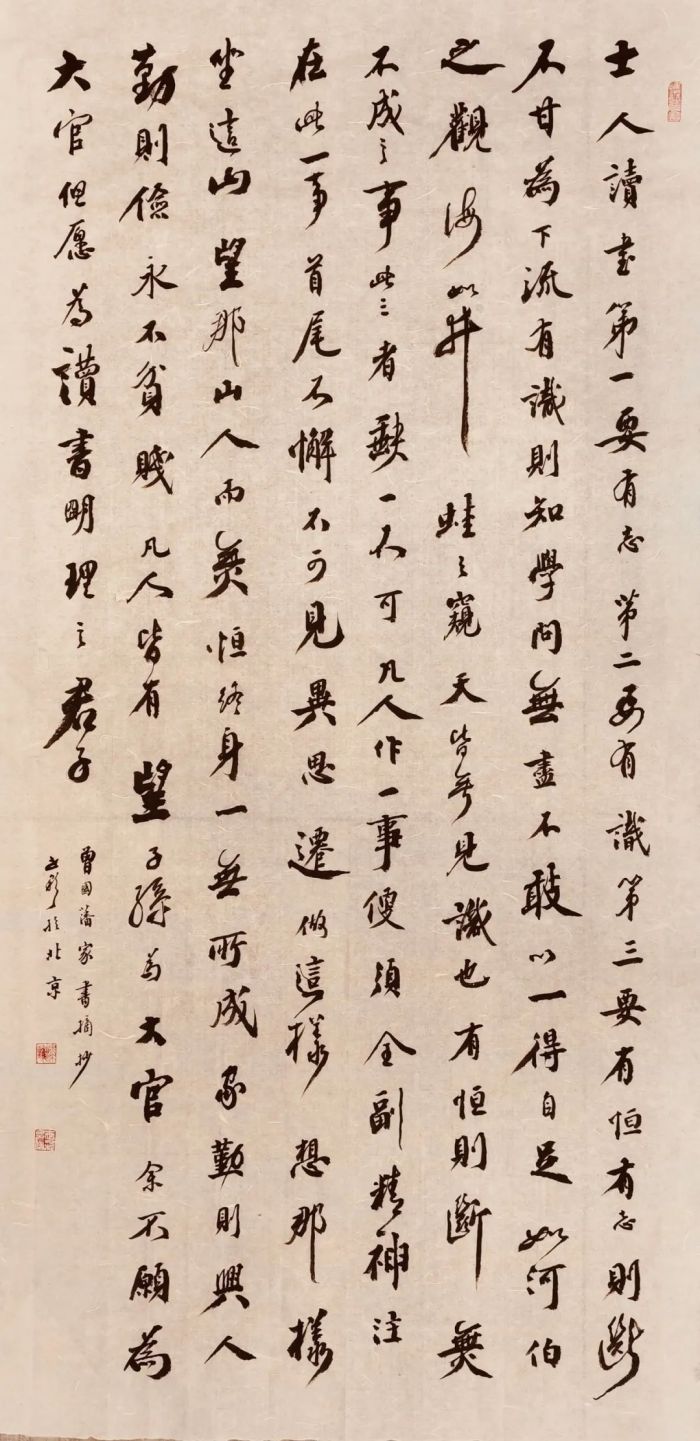 士人讀書第一要有志第二要有識第三要有恒有志則斷
不甘為下流有識則知學問無盡不敢以一得自足如河伯
之觀海如井蛙之窺天皆無見識也有恒則斷無
不成之事此三者缺一不可凡人作一事便須全副精神注
在此一事首尾不懈不可見異思遷做這樣想那樣
坐這山望那山人而無恒終身一無所成家勤則興人
勤則儉永不貧賤凡人皆有望子孫為大官余不願為
大官但愿為讀書明理之君子
曾國藩家書摘抄
於北京